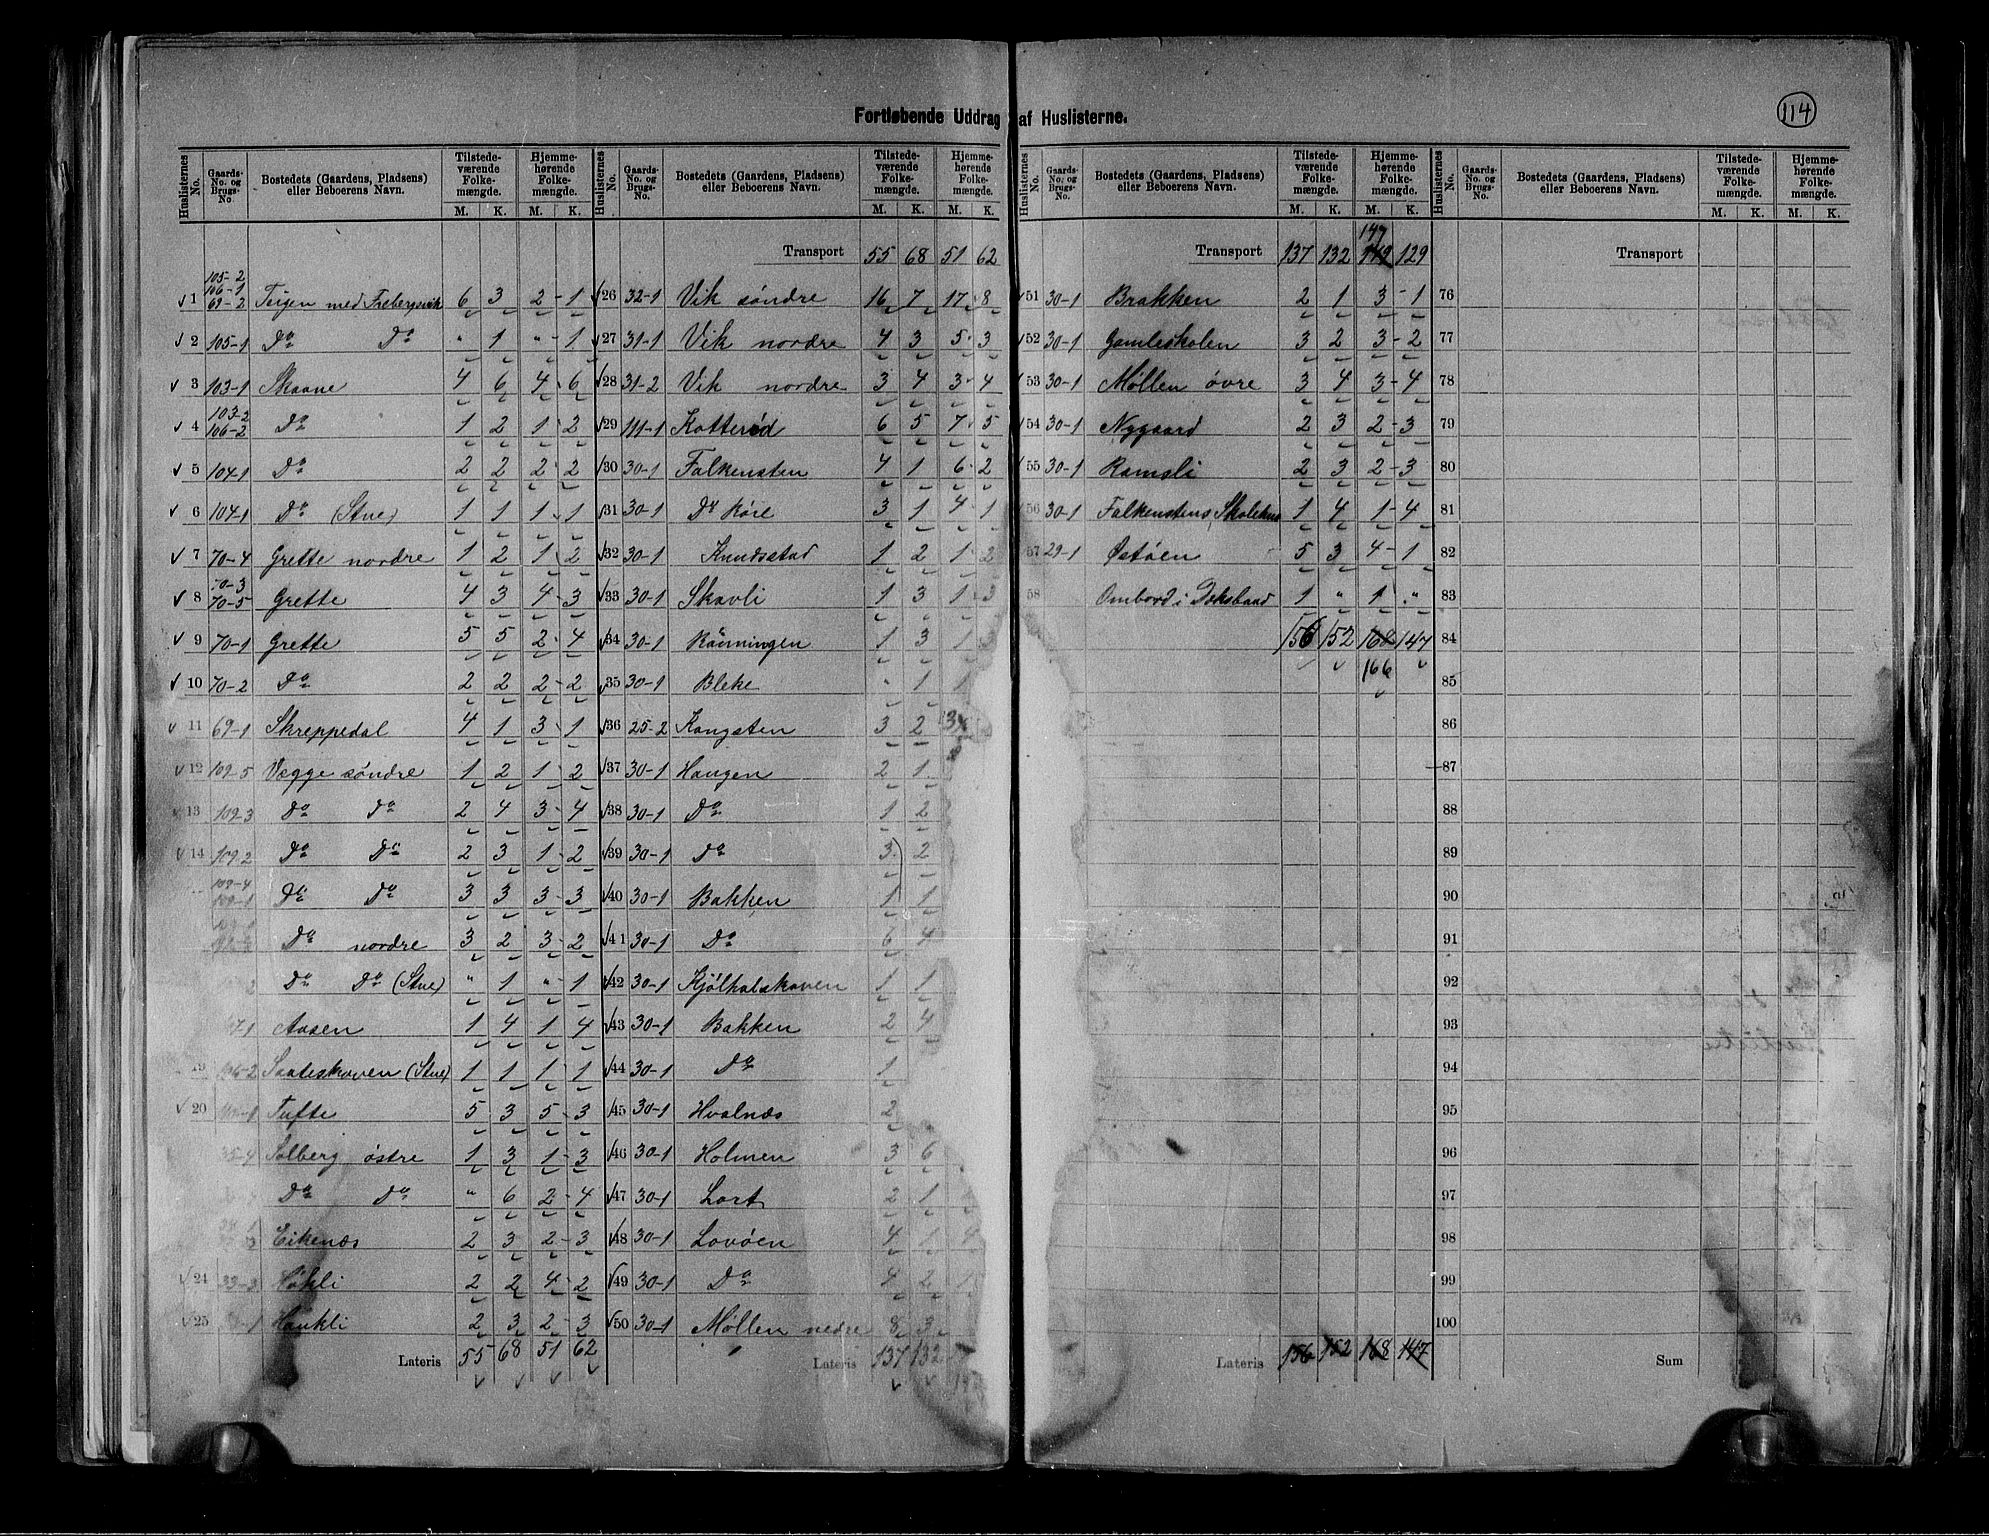 Fortløbende Uddrag af Huslisterne.
114
Huslisternes No. Gaards-No. og Brugs-No. Bostedets (Gaardens, Pladsens) eller Beboerens Navn. Tilstedeværende Folkemængde. M. K. Hjemmehørende Folkemængde. M. K.
105-2
106-1
1 69-2 Teigen med Frebergsvik 6 3 2 - 1
2 105-1 Do Do " 1 " - 1
3 103-1 Skaane 4 6 4 - 6
103-2
4 106-2 Do 1 2 1 - 2
5 104-1 Do 2 2 2 - 2
6 104-1 Do (Stue) 1 1 1 - 1
7 70-4 Grette nordre 1 2 1 - 2
70-3
8 70-5 Grette 4 3 4 - 3
9 70-1 Grette 5 5 2 - 4
10 70-2 Do 2 2 2 - 2
11 69-1 Skreppedal 4 1 3 - 1
12 109-5 Vegge søndre 1 2 1 - 2
13 109-3 Do Do 2 4 3 - 4
14 109-2 Do Do 2 3 1 - 2
109-4
109-1 Do Do 3 3 3 - 3
Do nordre 3 2 3 - 2
Do Do (Stue) " 1 " - 1
Aasen 1 4 1 4
19 106-2 Saateskoven (Stue) 1 1 1 - 1
20 Tufte 5 3 5 - 3
35-4 Solberg østre 1 3 1 - 3
Do Do " 6 2 - 4
Eikenæs 2 3 2 - 3
24 33-3 Høkli 2 2 4 - 2
25 Haukli 2 3 2 - 3
Lateris 55 68 51 62
Huslisternes No. Gaards-No. og Brugs-No. Bostedets (Gaardens, Pladsens) eller Beboerens Navn. Tilstedeværende Folkemængde. M. K. Hjemmehørende Folkemængde. M. K.
Transport 55 68 51 62
26 32-1 Vik søndre 16 7 17 - 8
27 31-1 Vik nordre 4 3 5 - 3
28 31-2 Vik nordre 3 4 3 - 4
29 111-1 Kotterød 6 5 7 - 5
30 30-1 Falkensten 4 1 6 - 2
31 30-1 Do Röre 3 1 4 - 1
32 30-1 Knudsstad 1 2 1 - 2
33 30-1 Skavli 1 3 1 - 3
34 30-1 Rönningen 1 3 1
35 30-1 Bleke " 1 1
36 25-2 Kongsten 3 2
37 30-1 Haugen 2 1
38 30-1 Do 1 2
39 30-1 Do 3 2
40 30-1 Bakken 1 1
41 30-1 Do 6 4
42 30-1 Kjölholskoven 1 1
43 30-1 Bakken 2 4
44 30-1 Do 1
45 30-1 Hvalnæs 2
46 30-1 Holmen 3 6
47 30-1 Lort 2 1
48 30-1 Lovöen 4 1 4
49 30-1 Do 4 2
50 30-1 Møllen nedre 8 3
Lateris 137 132
Huslisternes No. Gaards-No. og Brugs-No. Bostedets (Gaardens, Pladsens) eller Beboerens Navn. Tilstedeværende Folkemængde. M. K. Hjemmehørende Folkemængde. M. K.
147
Transport 137 132 149 129
51 30-1 Brakken 2 1 3 - 1
52 30-1 Gamleskolen 3 2 3 - 2
53 30-1 Møllen övre 3 4 3 - 4
54 30-1 Nygaard 2 3 2 - 3
55 30-1 Ramsli 2 3 2 - 3
56 30-1 Falkenstens Skolehus 1 4 1 - 4
57 29-1 Østöen 5 3 4 - 1
58 Ombord i Dæksbaad 1 " 1 "
156 152 168 147
166
Lateris 156 152 168 147
Huslisternes No. Gaards-No. og Brugs-No. Bostedets (Gaardens, Pladsens) eller Beboerens Navn. Tilstedeværende Folkemængde. M. K. Hjemmehørende Folkemængde. M. K.
Transport
76
77
78
79
80
81
82
83
84
85
86
87
88
89
90
91
92
93
94
95
96
97
98
99
100
Sum